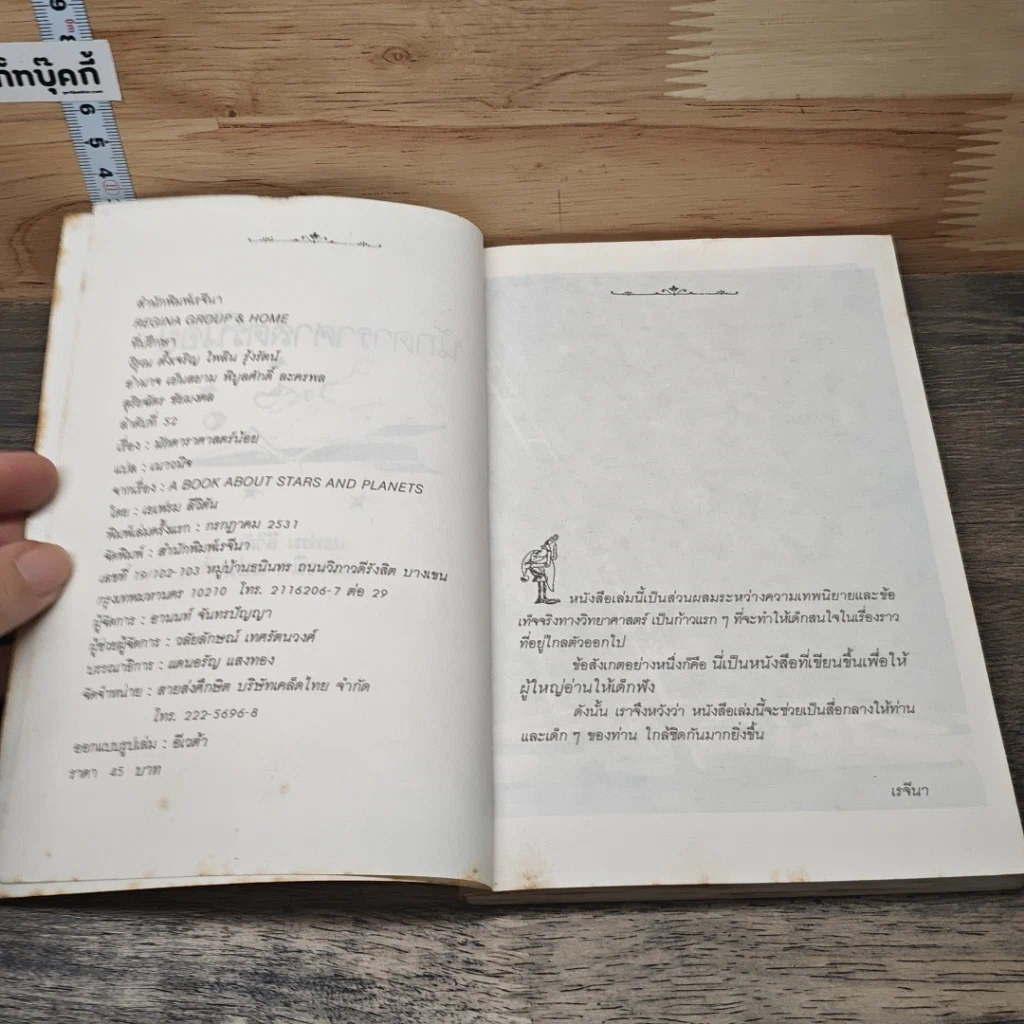 ก็ทบุ๊คกี้
9
6
5
4
สำนักพิมพ์เรจีนา
REGINA GROUP & HOME
ที่ปรึกษา
ตั้งเจริญ ไพลิน รุ้งรัตน์
อำนาจ เย็นสยาม พิบูลศักดิ์ ละครพล
สุริยฉัตร ชัยมงคล
ลำดับที่ 52
เรื่อง : นักดาราศาสตร์น้อย
แปล : เนาวนิจ
จากเรื่อง : A BOOK ABOUT STARS AND PLANETS
โดย : เยเฟรม ลีวิตัน
พิมพ์เล่มครั้งแรก : กรกฎาคม 2531
จัดพิมพ์ : สำนักพิมพ์เรจีนา
เลขที่ 19/102-103 หมู่บ้านธนินทร ถนนวิภาวดีรังสิต บางเขน
กรุงเทพมหานคร 10210 โทร. 2116206-7 ต่อ 29
ผู้จัดการ : อานนท์ จันทรปัญญา
ผู้ช่วยผู้จัดการ : วลัยลักษณ์ เทศรัตนวงศ์
บรรณาธิการ : แดนอรัญ แสงทอง
จัดจำหน่าย : สายส่งศึกษิต บริษัทเคล็ดไทย จำกัด
โทร. 222-5696-8
ออกแบบรูปเล่ม : อีเวต้า
ราคา 45 บาท
หนังสือเล่มนี้เป็นส่วนผสมระหว่างความเทพนิยายและข้อ
เท็จจริงทางวิทยาศาสตร์ เป็นก้าวแรก ๆ ที่จะทำให้เด็กสนใจในเรื่องราว
ที่อยู่ไกลตัวออกไป
ข้อสังเกตอย่างหนึ่งก็คือ นี่เป็นหนังสือที่เขียนขึ้นเพื่อให้
ผู้ใหญ่อ่านให้เด็กฟัง
ดังนั้น เราจึงหวังว่า หนังสือเล่มนี้จะช่วยเป็นสื่อกลางให้ท่าน
และเด็ก ๆ ของท่าน ใกล้ชิดกันมากยิ่งขึ้น
เรจีนา